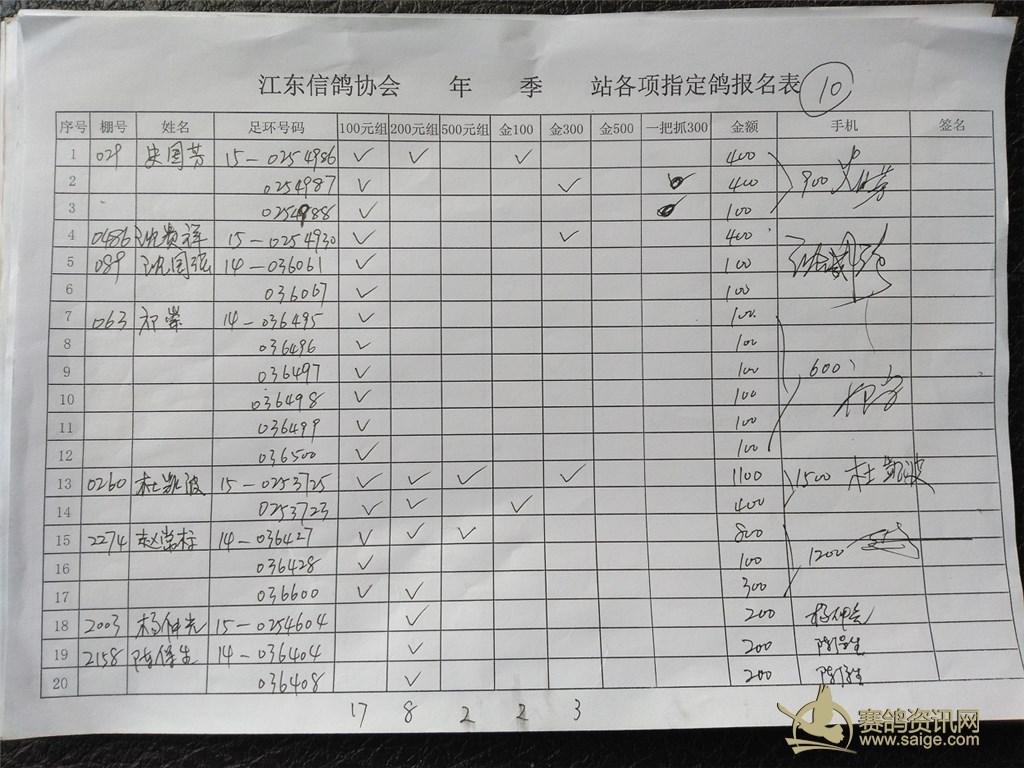 江东信鸽协会 年 季 站各项指定鸽报名表 10
序号 棚号 姓名 足环号码 100元组 200元组 500元组 金100 金300 金500 一把抓300 金额 手机 签名
1 029 史国芳 15-0254986 ✓ ✓ ✓ 400
2 0254987 ✓ ✓ 400 900
3 0254988 ✓ 100
4 0486 沈贵祥 15-0254930 ✓ ✓ 400
5 089 沈国强 14-036061 ✓ 100
6 036067 ✓ 100
7 063 14-036495 ✓ 100
8 036496 ✓ 100
9 036497 ✓ 100 600
10 036498 ✓ 100
11 036499 ✓ 100
12 036500 ✓ 100
13 0260 杜凯波 15-0253725 ✓ ✓ ✓ ✓ 1100 1500 杜凯波
14 0253723 ✓ ✓ ✓ 400
15 2274 14-036427 ✓ ✓ ✓ 800
16 036428 ✓ 100 1200
17 036600 ✓ ✓ 300
18 2003 杨仲先 15-0254604 ✓ 200 杨仲先
19 2158 14-036404 ✓ 200
20 036408 ✓ 200
17 8 2 2 3
赛鸽资讯网
www.saige.com